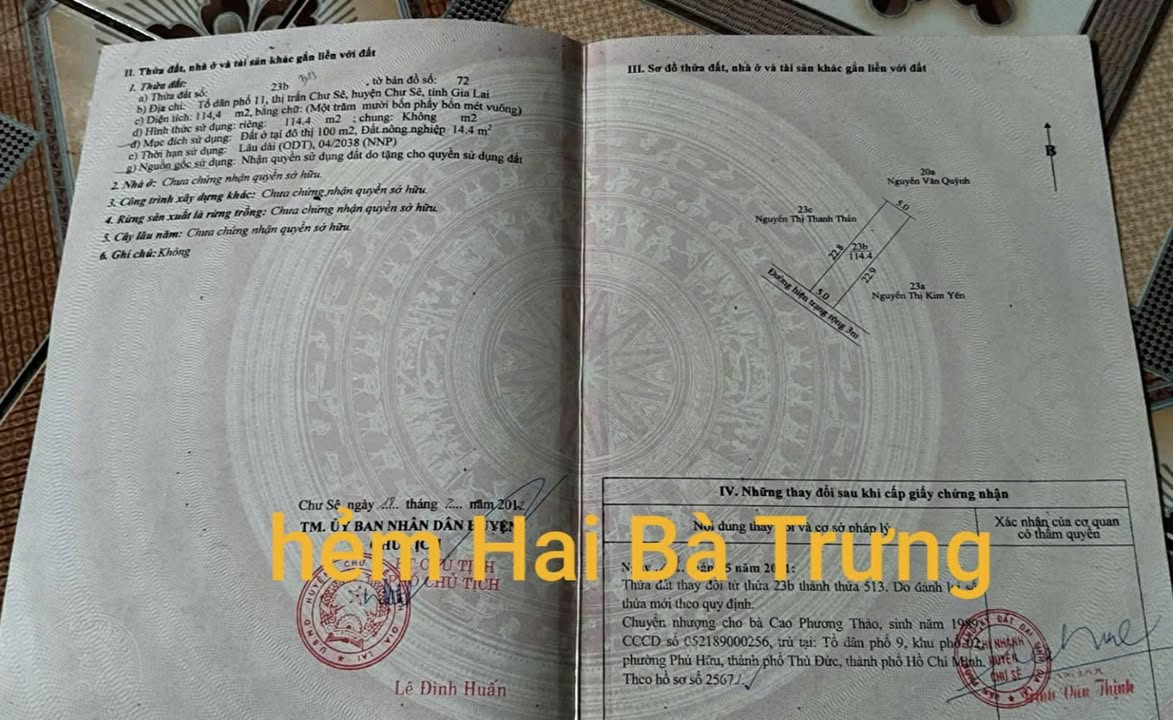 II. Thửa đất, nhà ở và tài sản khác gắn liền với đất
1. Thửa đất:
a) Thửa đất số: 23b , tờ bản đồ số: 72
b) Địa chỉ: Tổ dân phố 11, thị trấn Chư Sê, huyện Chư Sê, tỉnh Gia Lai
c) Diện tích: 114,4 m2, bằng chữ: (Một trăm mười bốn phẩy bốn mét vuông)
d) Hình thức sử dụng: riêng: 114.4 m2 ; chung: Không m2
đ) Mục đích sử dụng: Đất ở tại đô thị 100 m2, Đất nông nghiệp 14.4 m²
e) Thời hạn sử dụng: Lâu dài (ODT), 04/2038 (NNP)
g) Nguồn gốc sử dụng: Nhận quyền sử dụng đất do tặng cho quyền sử dụng đất
2. Nhà ở: Chưa chứng nhận quyền sở hữu.
3. Công trình xây dựng khác: Chưa chứng nhận quyền sở hữu.
4. Rừng sản xuất là rừng trồng: Chưa chứng nhận quyền sở hữu.
5. Cây lâu năm: Chưa chứng nhận quyền sở hữu.
6. Ghi chú: Không
Chư Sê, ngày tháng năm
TM. ỦY BAN NHÂN DÂN HUYỆN
CHỦ TỊCH
KT. CHỦ TỊCH
PHÓ CHỦ TỊCH
Lê Đình Huấn
III. Sơ đồ thửa đất, nhà ở và tài sản khác gắn liền với đất
B
20a
Nguyễn Văn Quỳnh
23c
Nguyễn Thị Thanh Thảo
5.0
22.8
23b
114.4
22.9
23a
Nguyễn Thị Kim Yến
5.0
Đường hiện trạng rộng 3m
IV. Những thay đổi sau khi cấp giấy chứng nhận
Nội dung thay đổi và cơ sở pháp lý
Xác nhận của cơ quan
có thẩm quyền
hẻm Hai Bà Trưng
Thửa đất thay đổi từ thửa 23b thành thửa 513. Do đánh lại số
thửa mới theo quy định.
Chuyển nhượng cho bà Cao Phương Thảo, sinh năm 1989,
CCCD số 052189000256, trú tại: Tổ dân phố 9, khu phố 02,
phường Phú Hữu, thành phố Thủ Đức, thành phố Hồ Chí Minh.
Theo hồ sơ số 2567
CHI NHÁNH
HUYỆN
CHƯ SÊ
Văn Thịnh